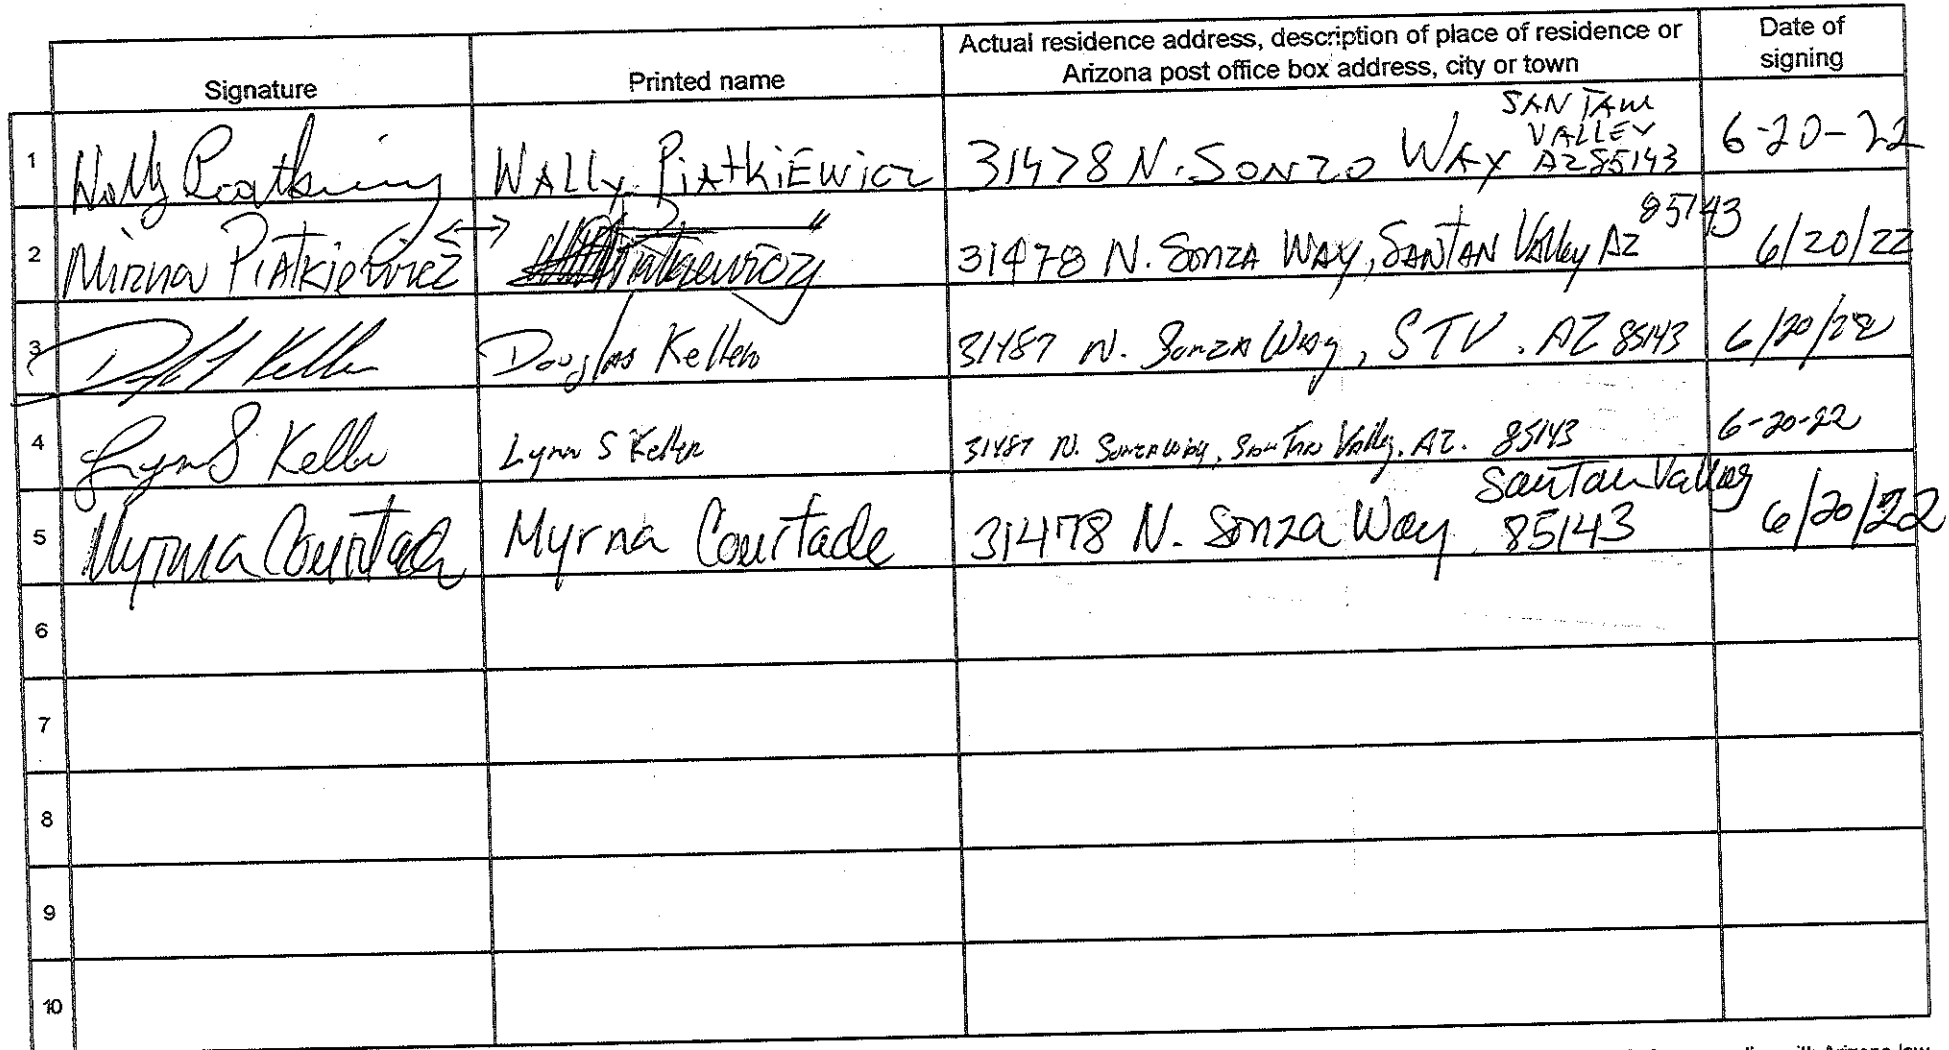 Signature Printed name Actual residence address, description of place of residence or Arizona post office box address, city or town Date of signing
1 Wally Piatkiewicz WALLy PiAtkiEwicz 31478 N. SONZO WAY SAN TAN VALLEY AZ 85143 6-20-22
2 Mirna PiAtkiewicz <-> Piatkiewicz " 31478 N. SonzA WAY, SANTAN Valley AZ 85143 6/20/22
3 Keller Douglas Keller 31487 N. SonzA Way, STV. AZ 85143 6/20/22
4 Lynn S Keller Lynn S Keller 31487 N. Sonza Way, San Tan Valley, AZ. 85143 6-20-22
5 Myrna Courtade Myrna Courtade 31478 N. Sonza Way SanTan Valley 85143 6/20/22
6
7
8
9
10
with Arizona law